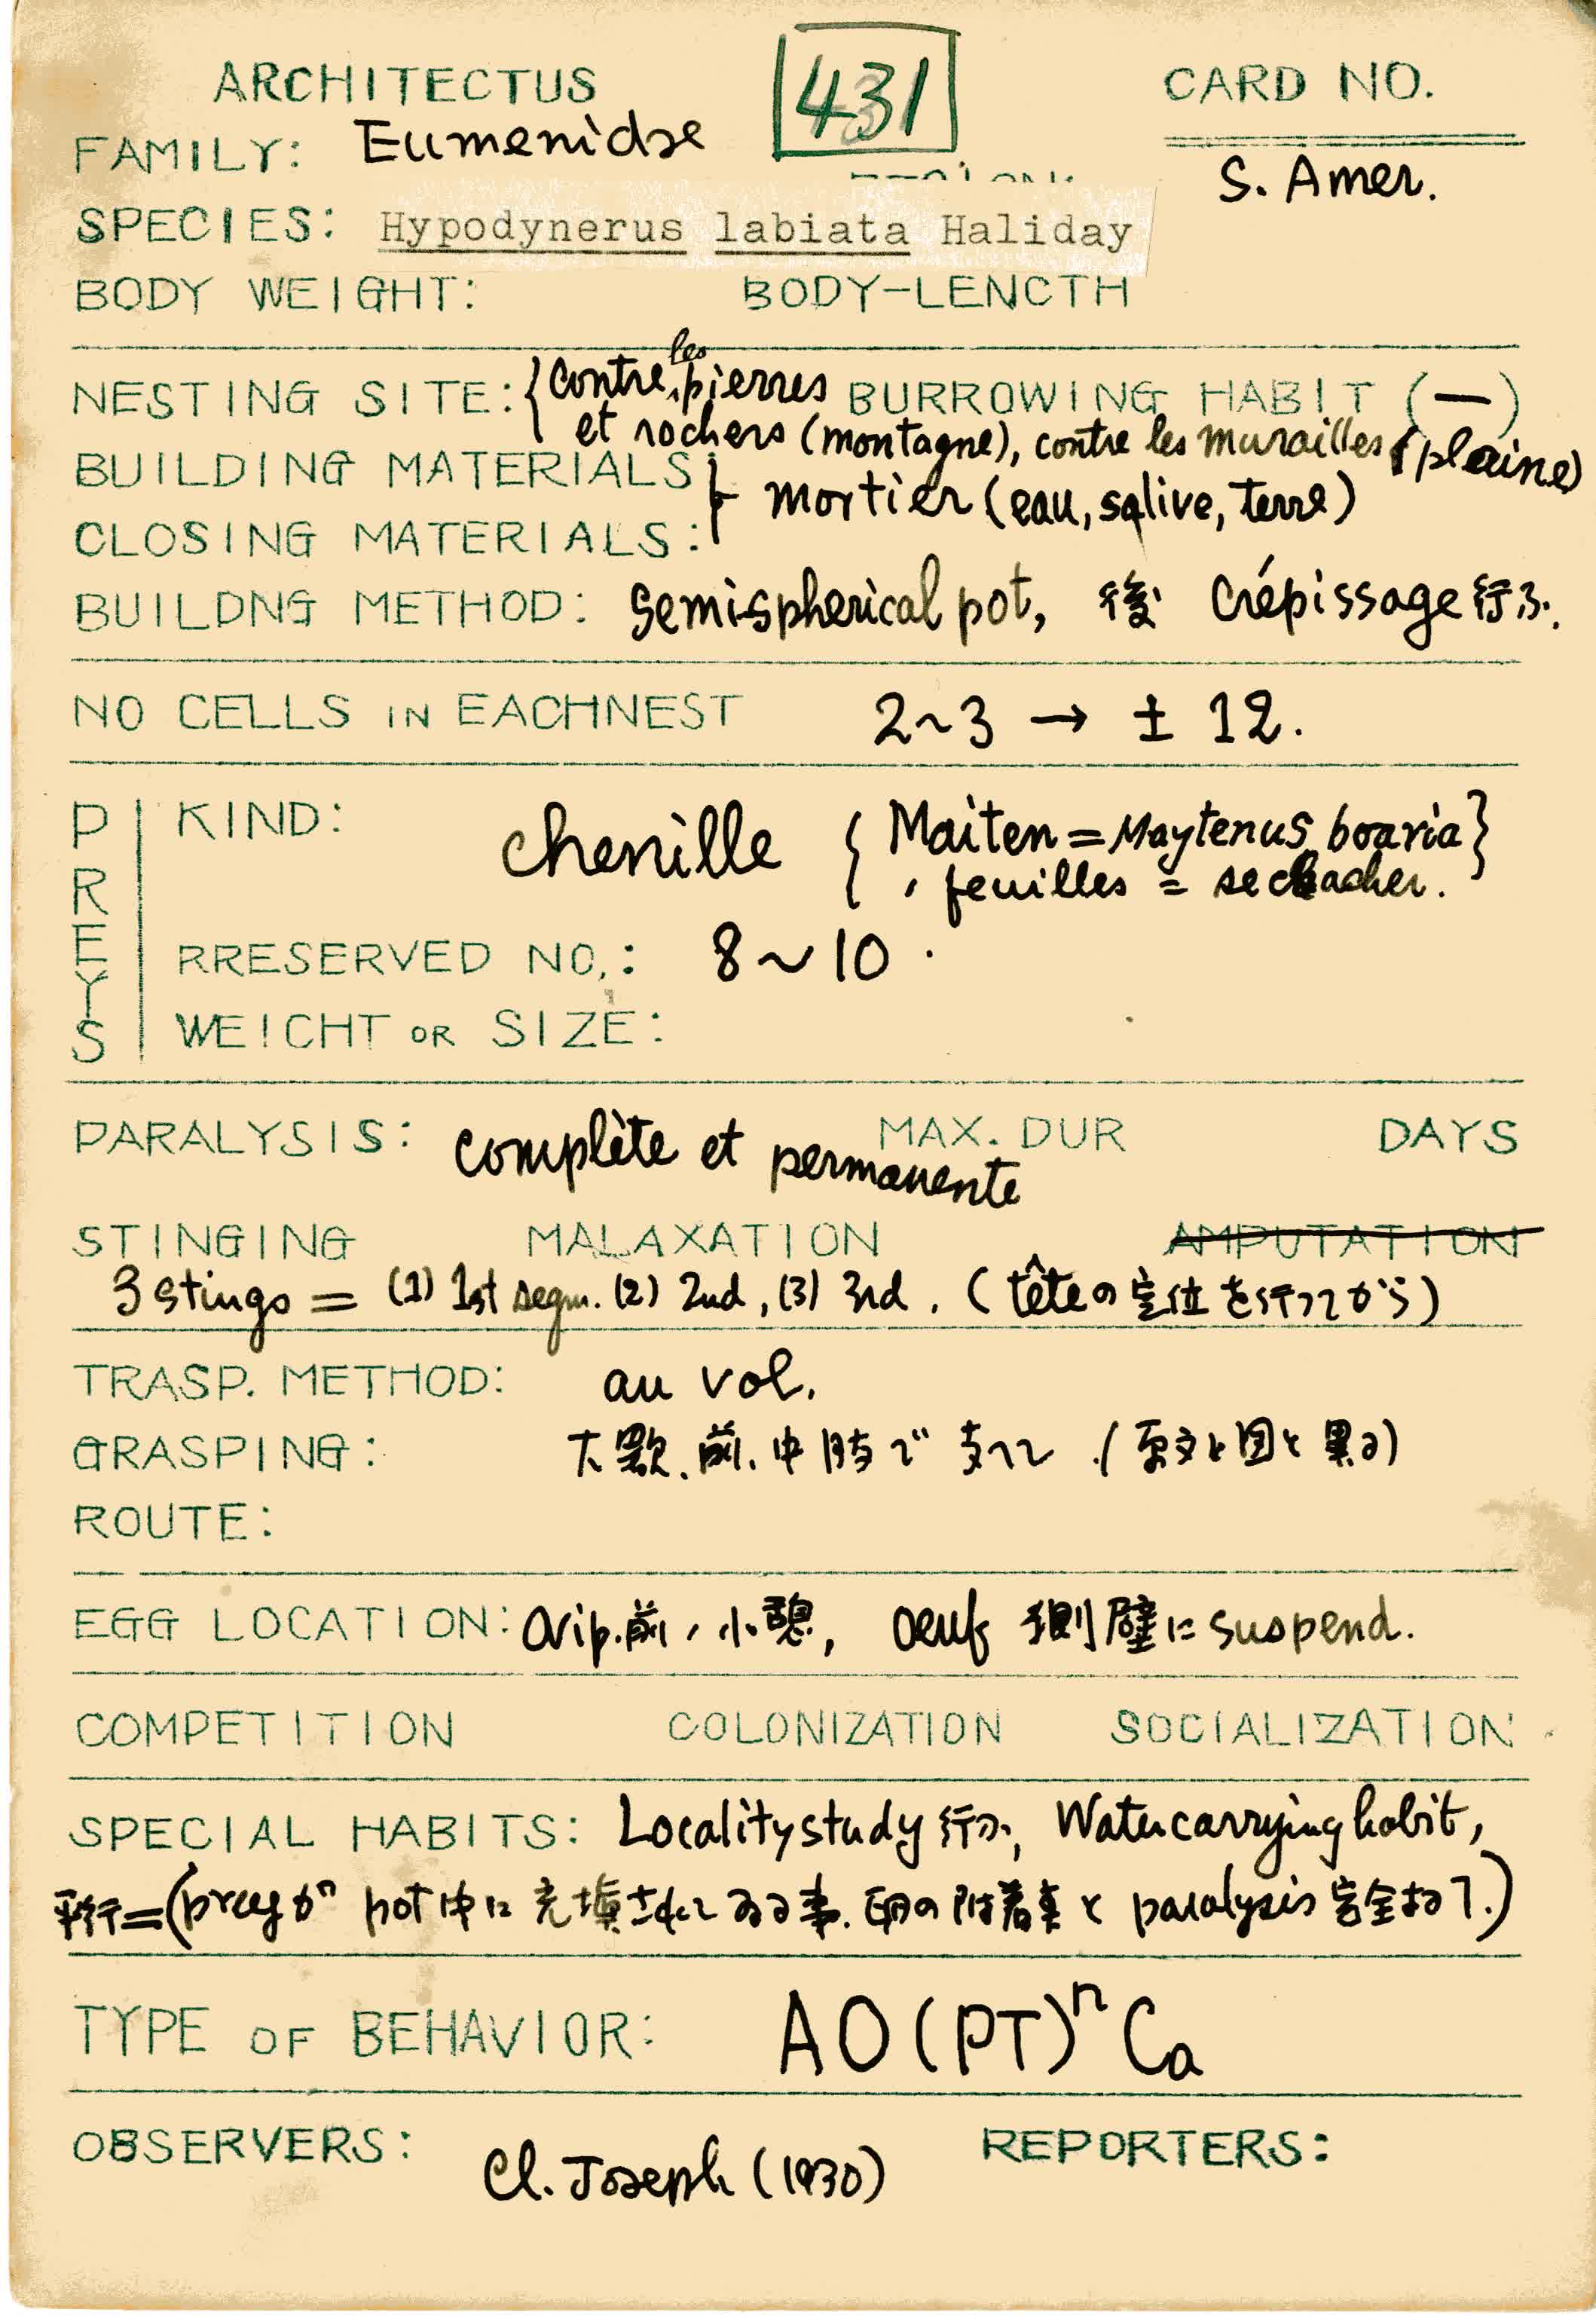 ARCHITECTUS 431 CARD NO.
FAMILY: Eumenidae S. Amer.
SPECIES: Hypodynerus labiata Haliday
BODY WEIGHT: BODY-LENCTH
NESTING SITE: { contre les pierres BURROWING HABIT (—)
et rochers (montagne), contre les murailles (plaine)
BUILDING MATERIALS
mortier (eau, salive, terre)
CLOSING MATERIALS:
BUILDNG METHOD: Semispherical pot, 後 Crépissage 行ふ.
NO CELLS IN EACHNEST 2~3 → ± 12.
PREYS
KIND: chenille { Maiten = Maytenus boaria }
feuilles = se cacher.
RRESERVED NO.: 8~10.
WEICHT OR SIZE:
PARALYSIS: complète et permanente MAX. DUR DAYS
STINGING MALAXATION AMPUTATION
3 stings = (1) 1st segm. (2) 2nd, (3) 3rd. (têteの定位を行ってから)
TRASP. METHOD: au vol.
GRASPING: 大顎、前、中肢で支へて.(原文と図と異る)
ROUTE:
EGG LOCATION: Ovip.前、小憩, oeuf 側壁に suspend.
COMPETITION COLONIZATION SOCIALIZATION
SPECIAL HABITS: Locality study 行ふ, Water carrying habit,
平行=(preyが pot中に充填されてゐる事. 卵の附着糸と paralysis 完全なる了.)
TYPE OF BEHAVIOR: AO(PT)ⁿCa
OBSERVERS: Cl. Joseph (1930) REPORTERS: